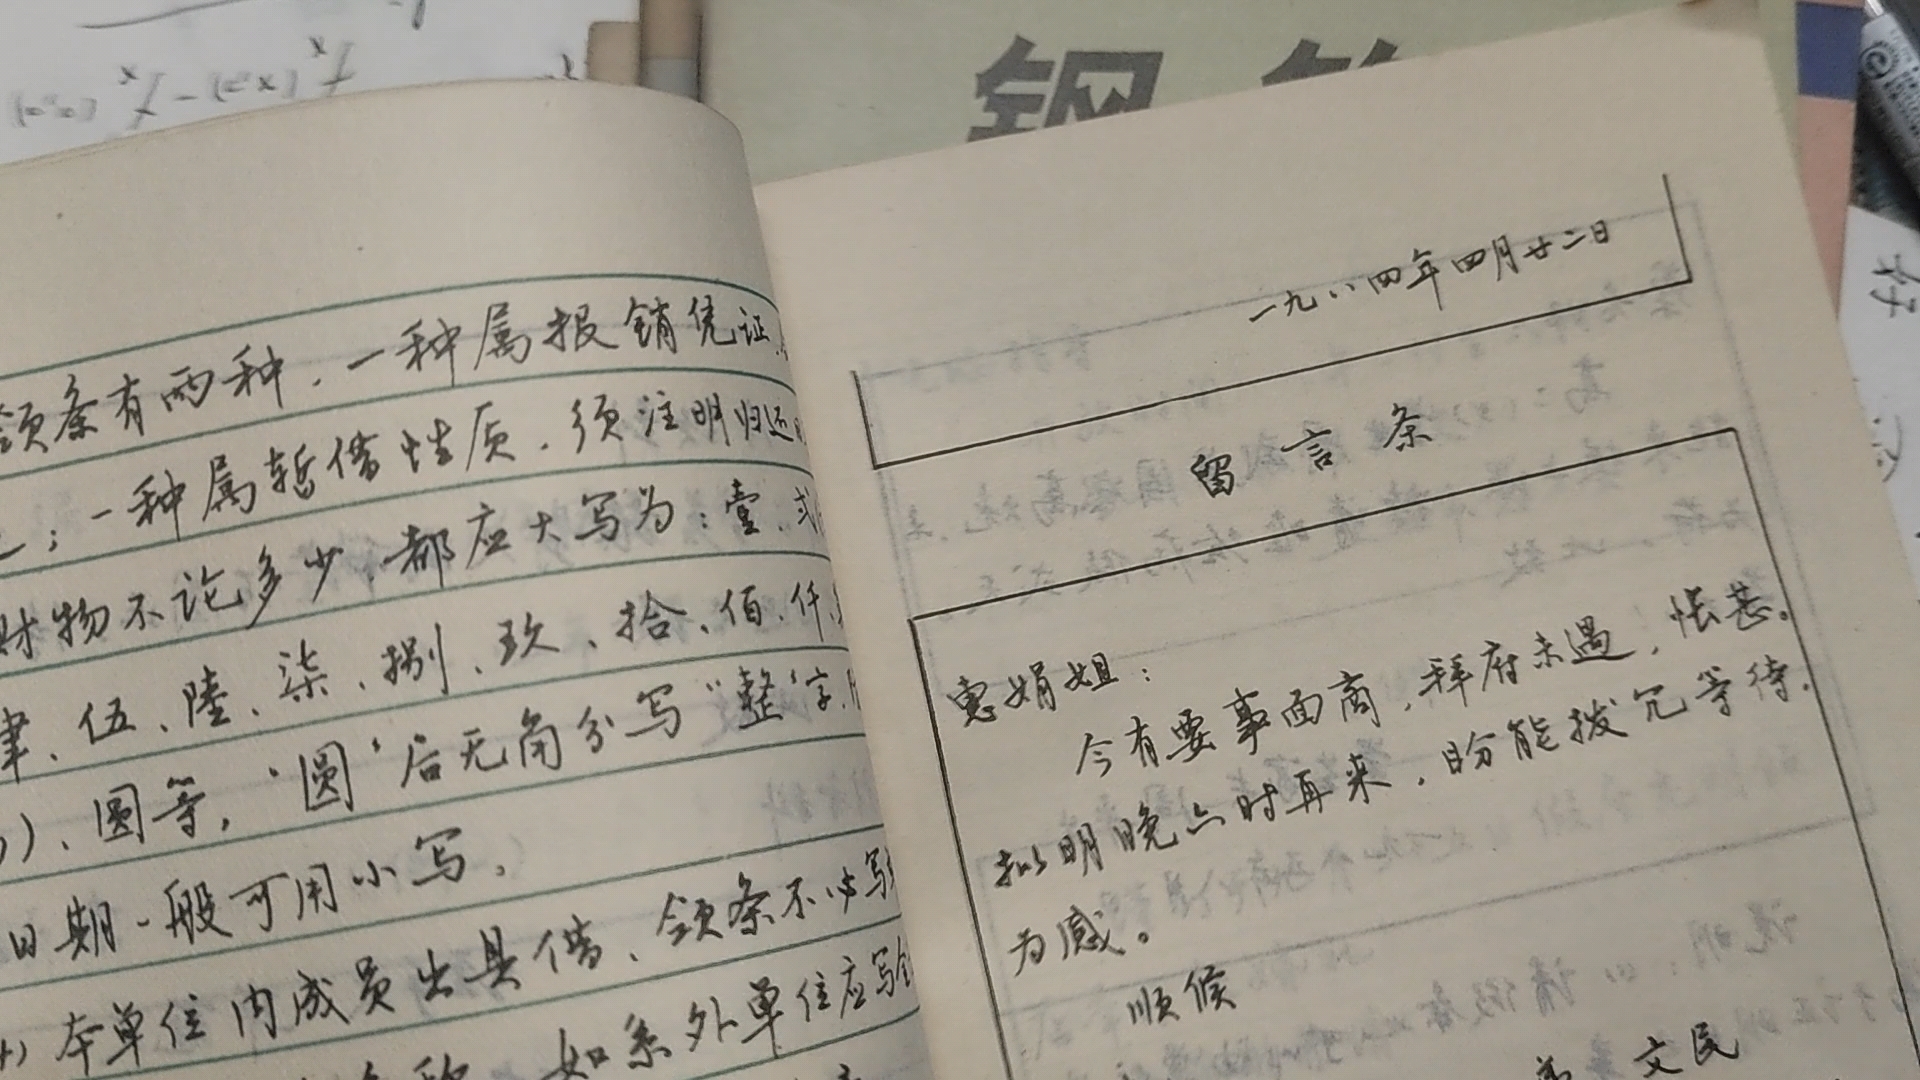 钢
领条有两种.一种属报销凭证
;一种属暂借性质.须注明归还
财物不论多少.都应大写为:壹.弍
肆、伍、陸、柒、捌、玖、拾、佰、仟
)、圆等,"圆"后无角分写"整"字
日期一般可用小写.
本单位内成员出具借、领条不必写
如系外单位应写
一九八四年四月廿二日
留言条
惠娟姐:
今有要事面商,拜府未遇,怅甚。
拟明晚六时再来,盼能拨冗等待.
为感。
顺候
弟 文民